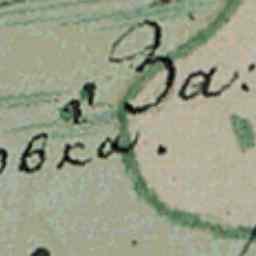 За:
овка.